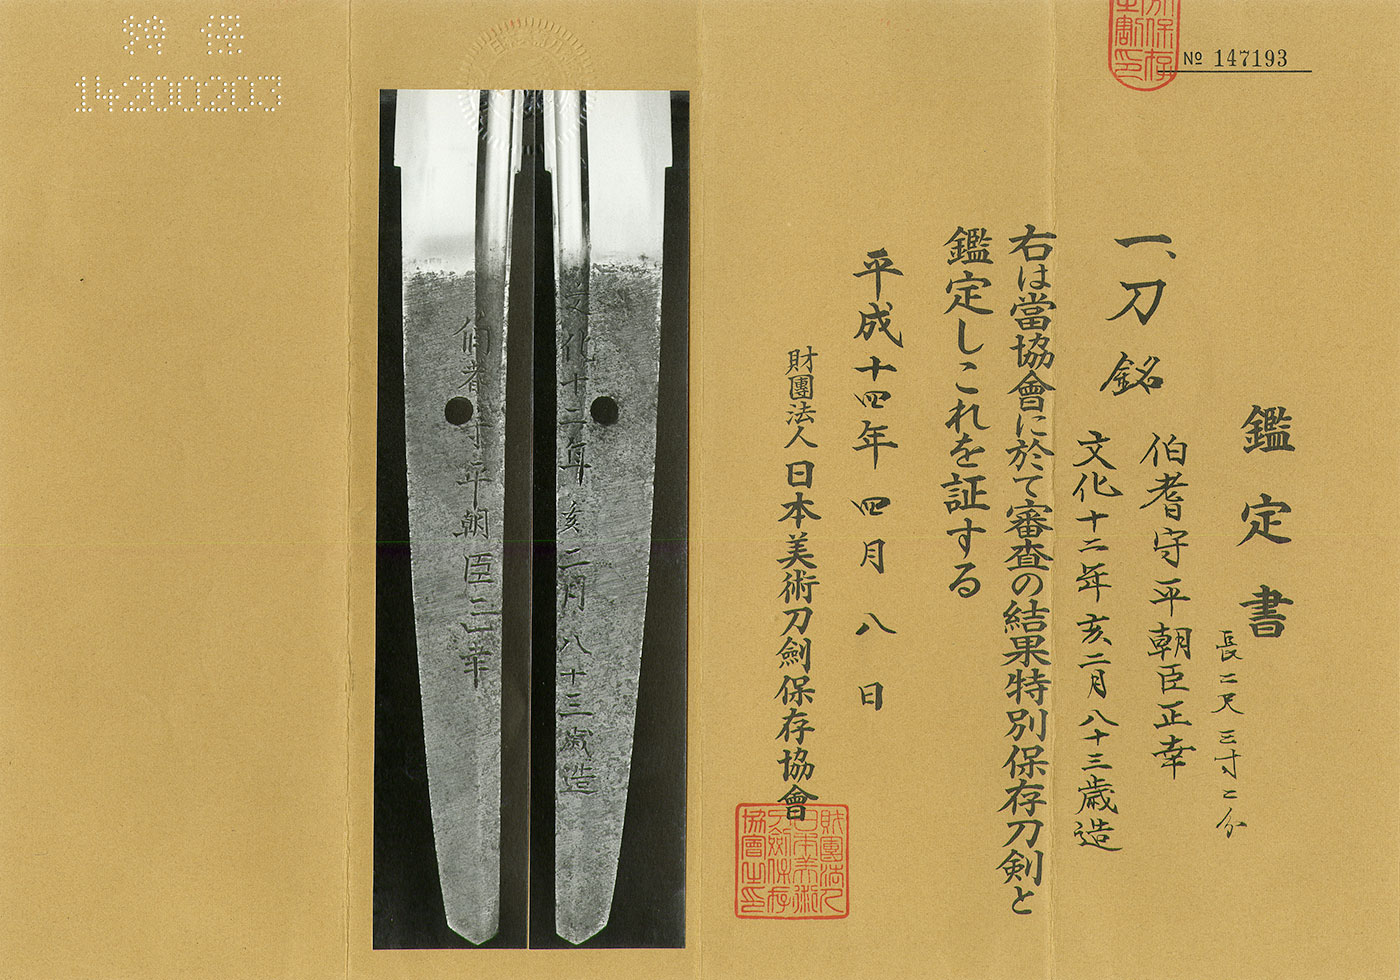 特保
14200203
№ 147193
鑑定書
一、刀 銘
長二尺三寸二分
伯耆守平朝臣正幸
文化十二年亥二月八十三歳造
右は當協會に於て審査の結果特別保存刀剣と
鑑定しこれを証する
平成十四年四月八日
財團法人日本美術刀劍保存協會
財團法人
日本美術
刀劍保存
協會之印
伯耆守平朝臣正幸
文化十二年亥二月八十三歳造